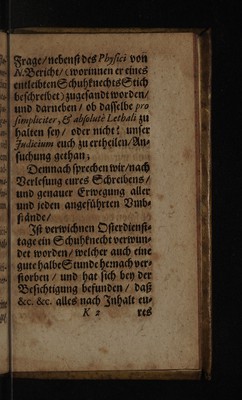 Frage/ nebenst des Physici von
N. Bericht/ (worinnen er eines
entleibten Schuhknechts Stich
beschreibet) zugesandt worden/
und darneben/ ob dasselbe pro
simpliciter, & absolutè Lethali zu
halten sey/ oder nicht? unser
Judicium euch zu ertheilen/ An-
suchung gethan;
Demnach sprechen wir/ nach
Verlesung eures Schreibens/
und genauer Erwegung aller
und jeden angeführten Umb-
stände/
Ist verwichnen Osterdienst-
tage ein Schuhknecht verwun-
det worden/ welcher auch eine
gute halbe Stunde hernach ver-
storben/ und hat sich bey der
Besichtigung befunden/ daß
&c. &c. alles nach Inhalt eu-
K 2 res